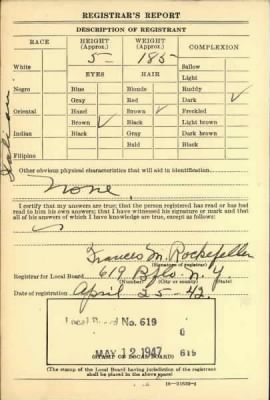 REGISTRAR'S REPORT
DESCRIPTION OF REGISTRANT
RACE HEIGHT (Approx.) WEIGHT (Approx.) COMPLEXION
White 5 - 185 - Sallow
EYES HAIR Light
Negro Blue Blonde Ruddy
Gray Red Dark ✓
Oriental Hazel Brown ✓ Freckled
Brown ✓ Black Light brown
Indian Black Gray Dark brown
Bald Black
Filipino
Italian
Other obvious physical characteristics that will aid in identification
None
I certify that my answers are true; that the person registered has read or has had
read to him his own answers; that I have witnessed his signature or mark and that
all of his answers of which I have knowledge are true, except as follows:
Frances M. Rockefeller
(Signature of registrar)
Registrar for Local Board 619 Bflo N.Y.
(Number) (City or county) (State)
Date of registration April 25 - 42
Local Board No. 619
0
MAY 12 1947 619
(STAMP OF LOCAL BOARD)
(The stamp of the Local Board having jurisdiction of the registrant
shall be placed in the above space)